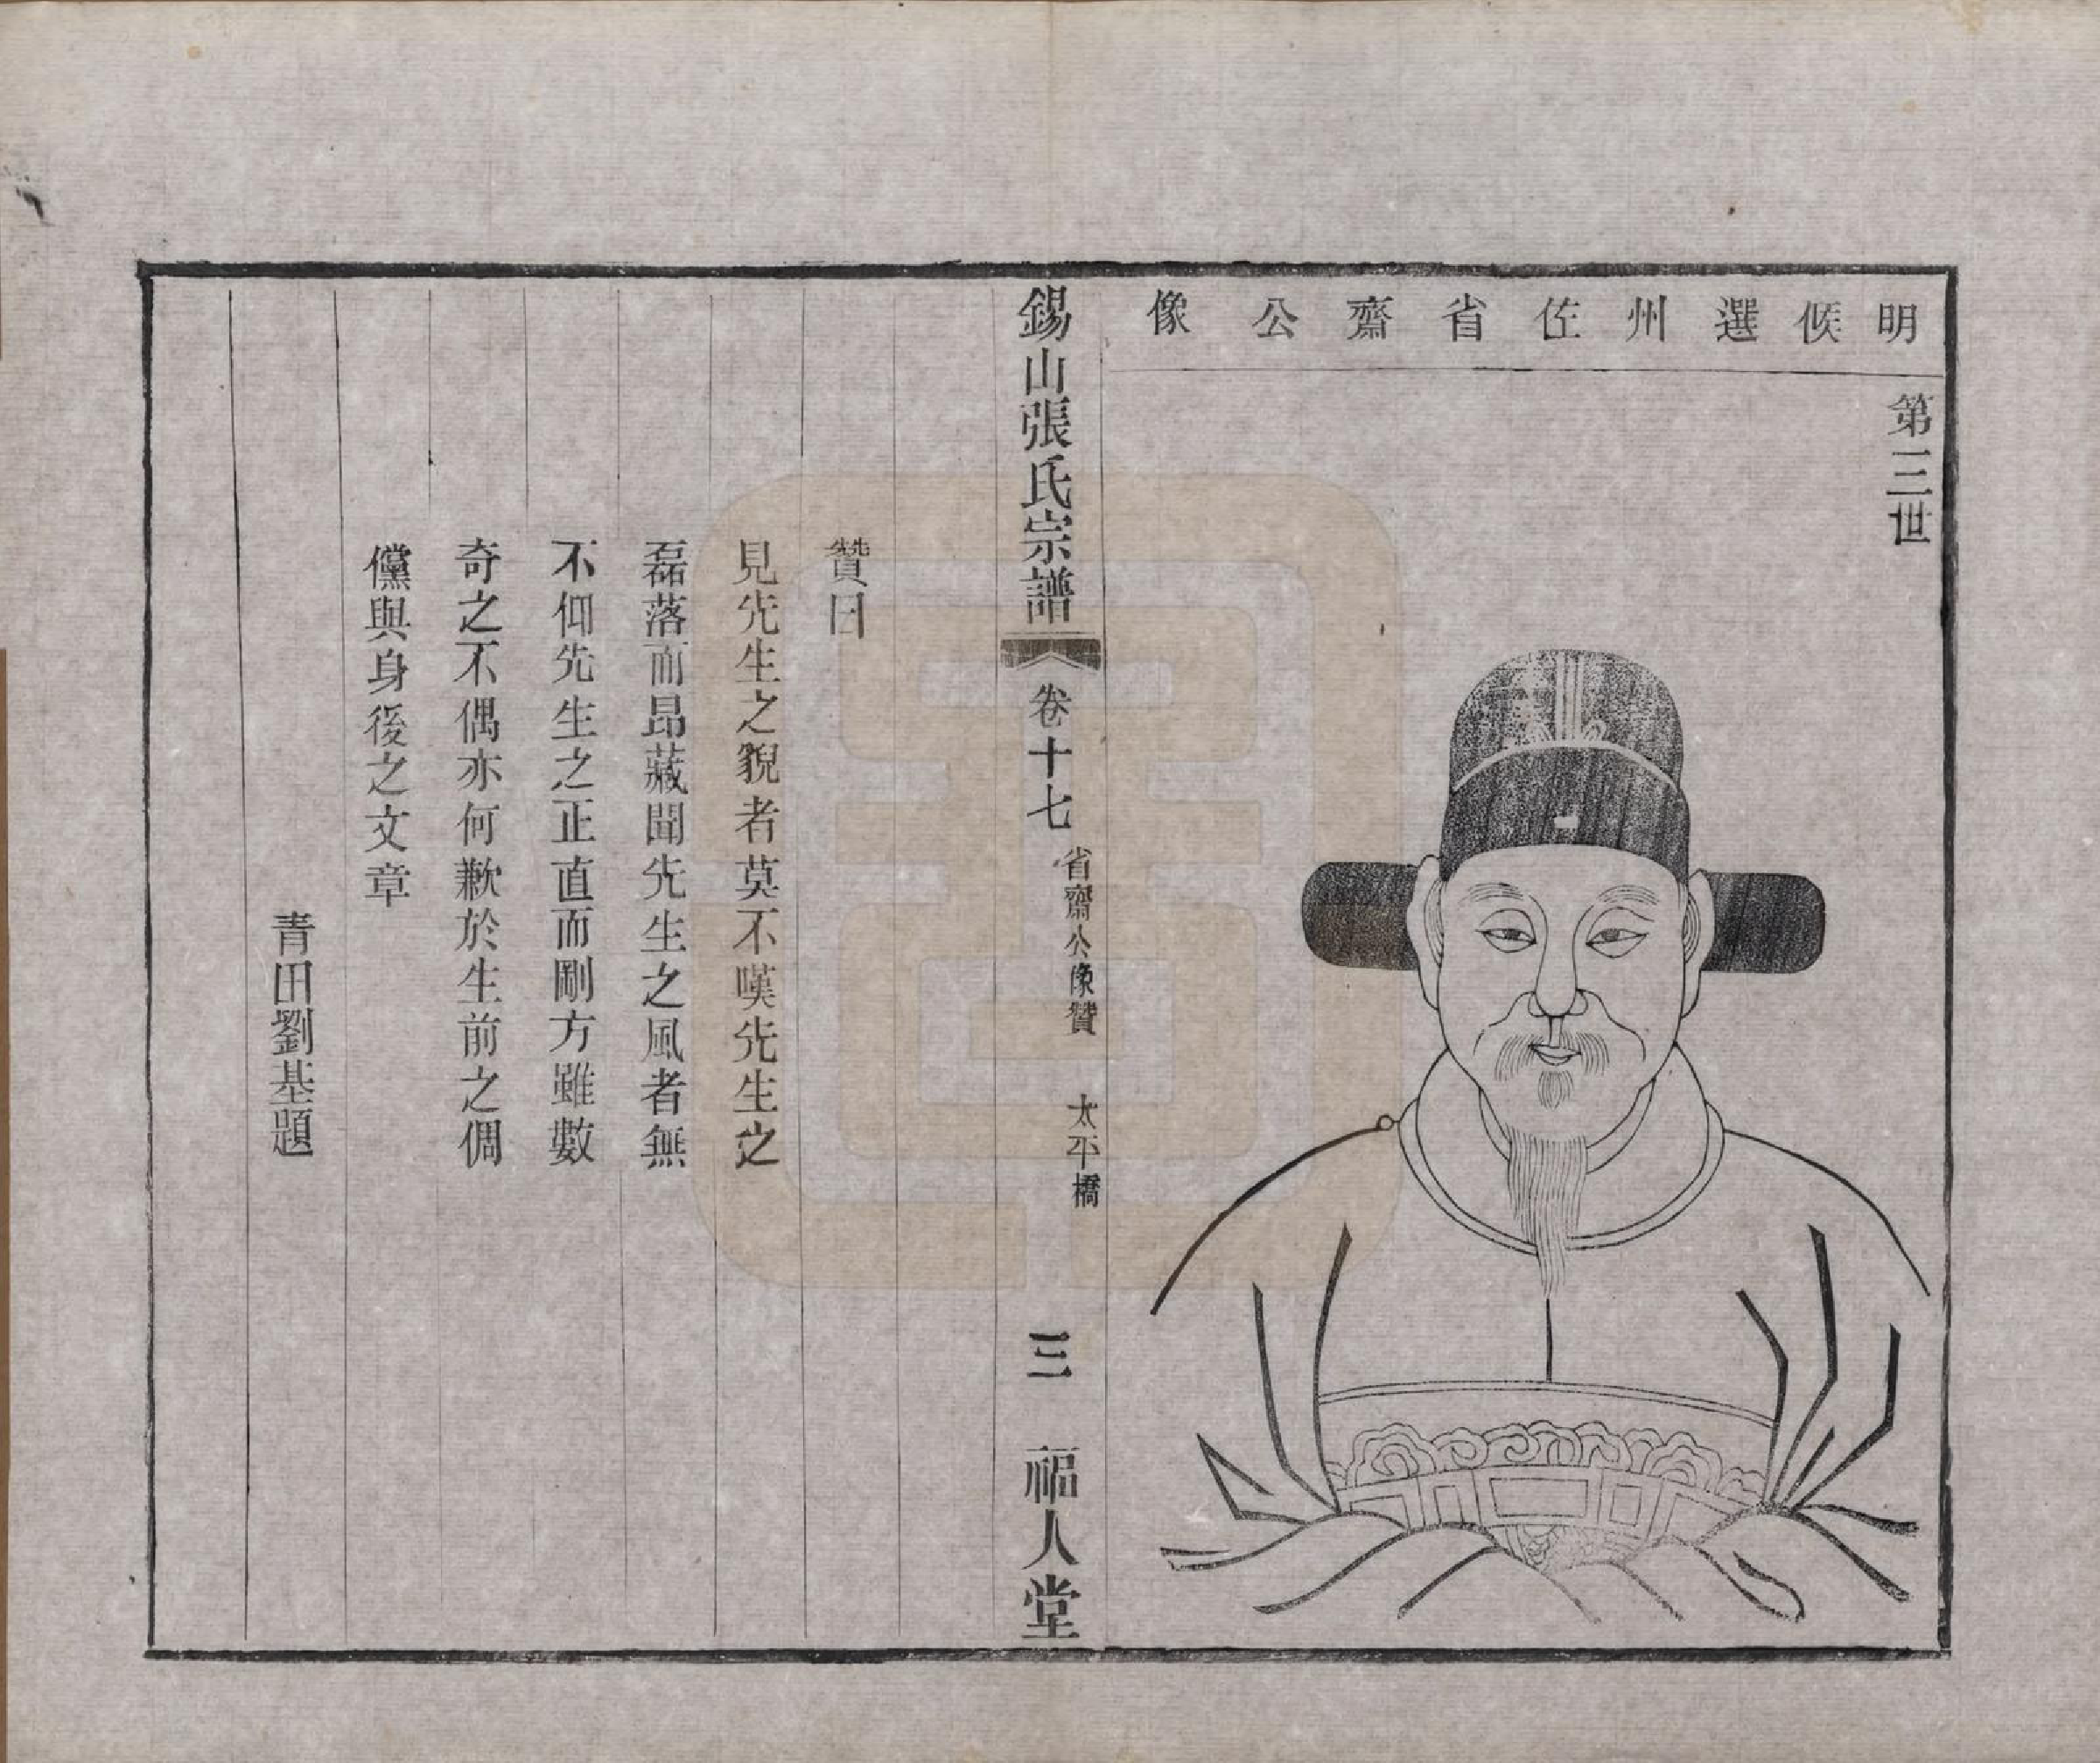 明候選州佐省齋公像
第三世
錫山張氏宗譜
卷十七
省齋公像贊
太平橋
三
福人堂
贊曰
見先生之貌者莫不嘆先生之
磊落而昂藏聞先生之風者無
不仰先生之正直而剛方雖數
奇之不偶亦何歉於生前之倜
儻與身後之文章
青田劉基題